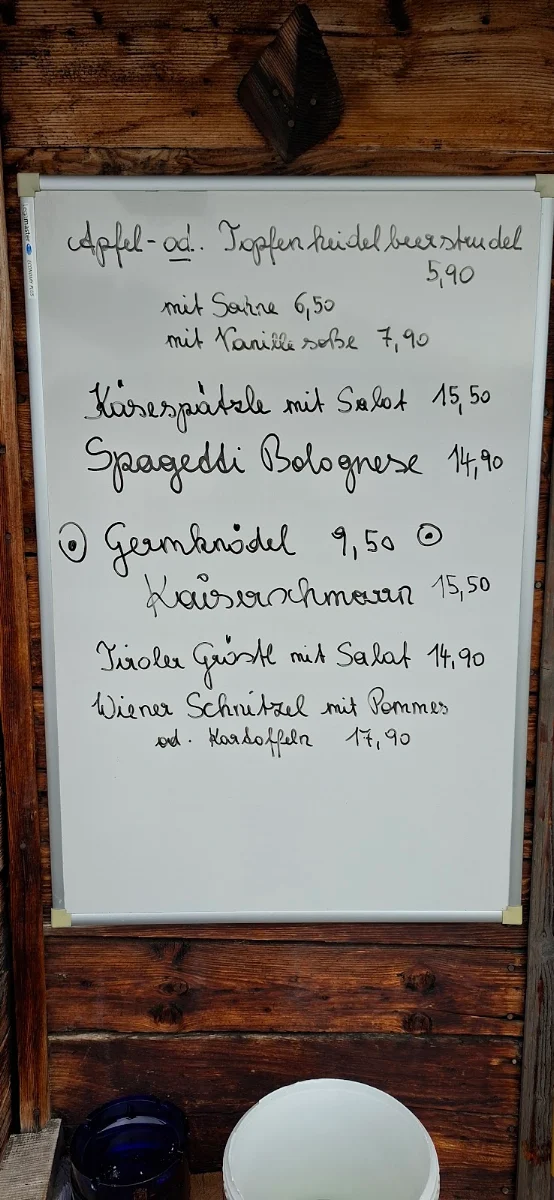 Apfel-od. Topfenheidelbeerstrudel
5,90
mit Sahne 6,50
mit Vanillesoße 7,90
Käsespätzle mit Salat 15,50
Spagetti Bolognese 14,90
Germknödel 9,50
Kaiserschmarrn 15,50
Tiroler Gröstl mit Salat 14,90
Wiener Schnitzel mit Pommes
od. Kartoffeln 17,90